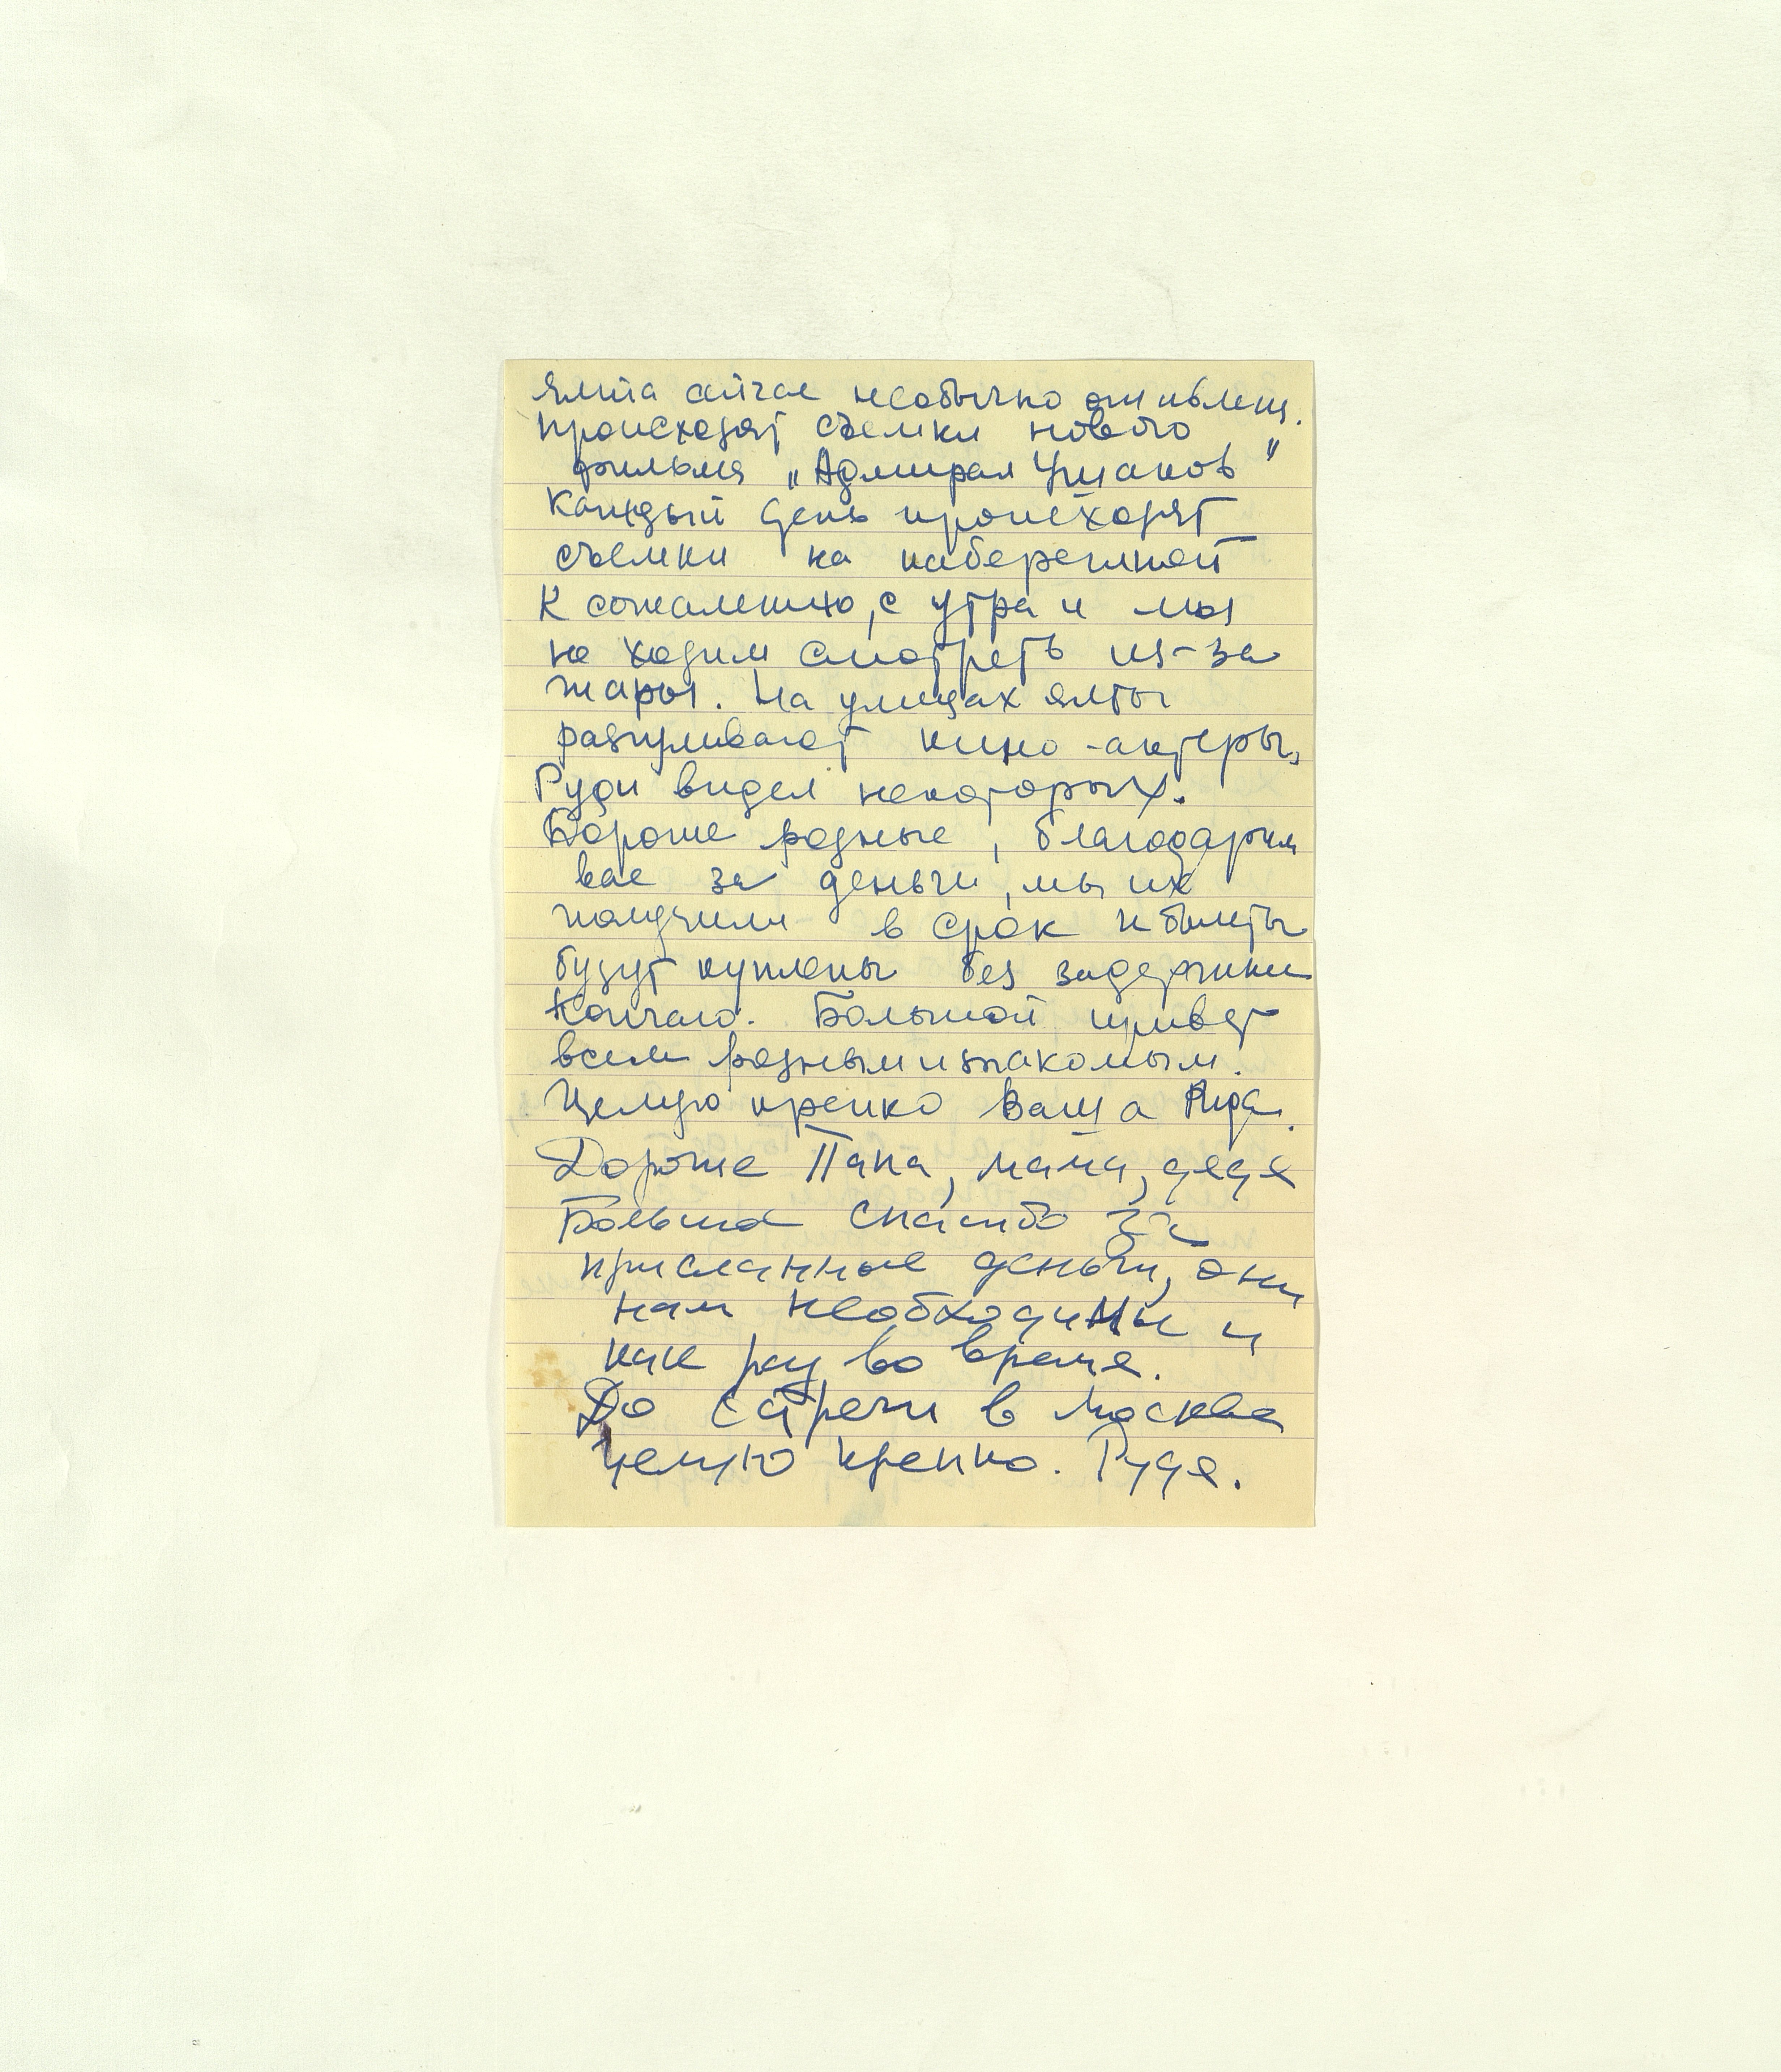 Ялта сейчас необычно оживлена.
Происходят съемки нового
фильма „Адмирал Ушаков"
Каждый день происходят
съемки на набережной
К сожалению, с утра и мы
не ходим смотреть из-за
жары. На улицах Ялты
разгуливают кино-актеры,
Руди видел некоторых.
Дорогие родные, благодарим
вас за деньги, мы их
получили в срок и билеты
будут куплены без задержки
Кончаю. Большой привет
всем родным и знакомым.
Целую крепко Ваша Рира.
Дорогие Папа, мама, дядя
Большое спасибо за
присланные деньги, они
нам необходимы и
как раз во время.
До встречи в Москве
Целую крепко. Рудя.